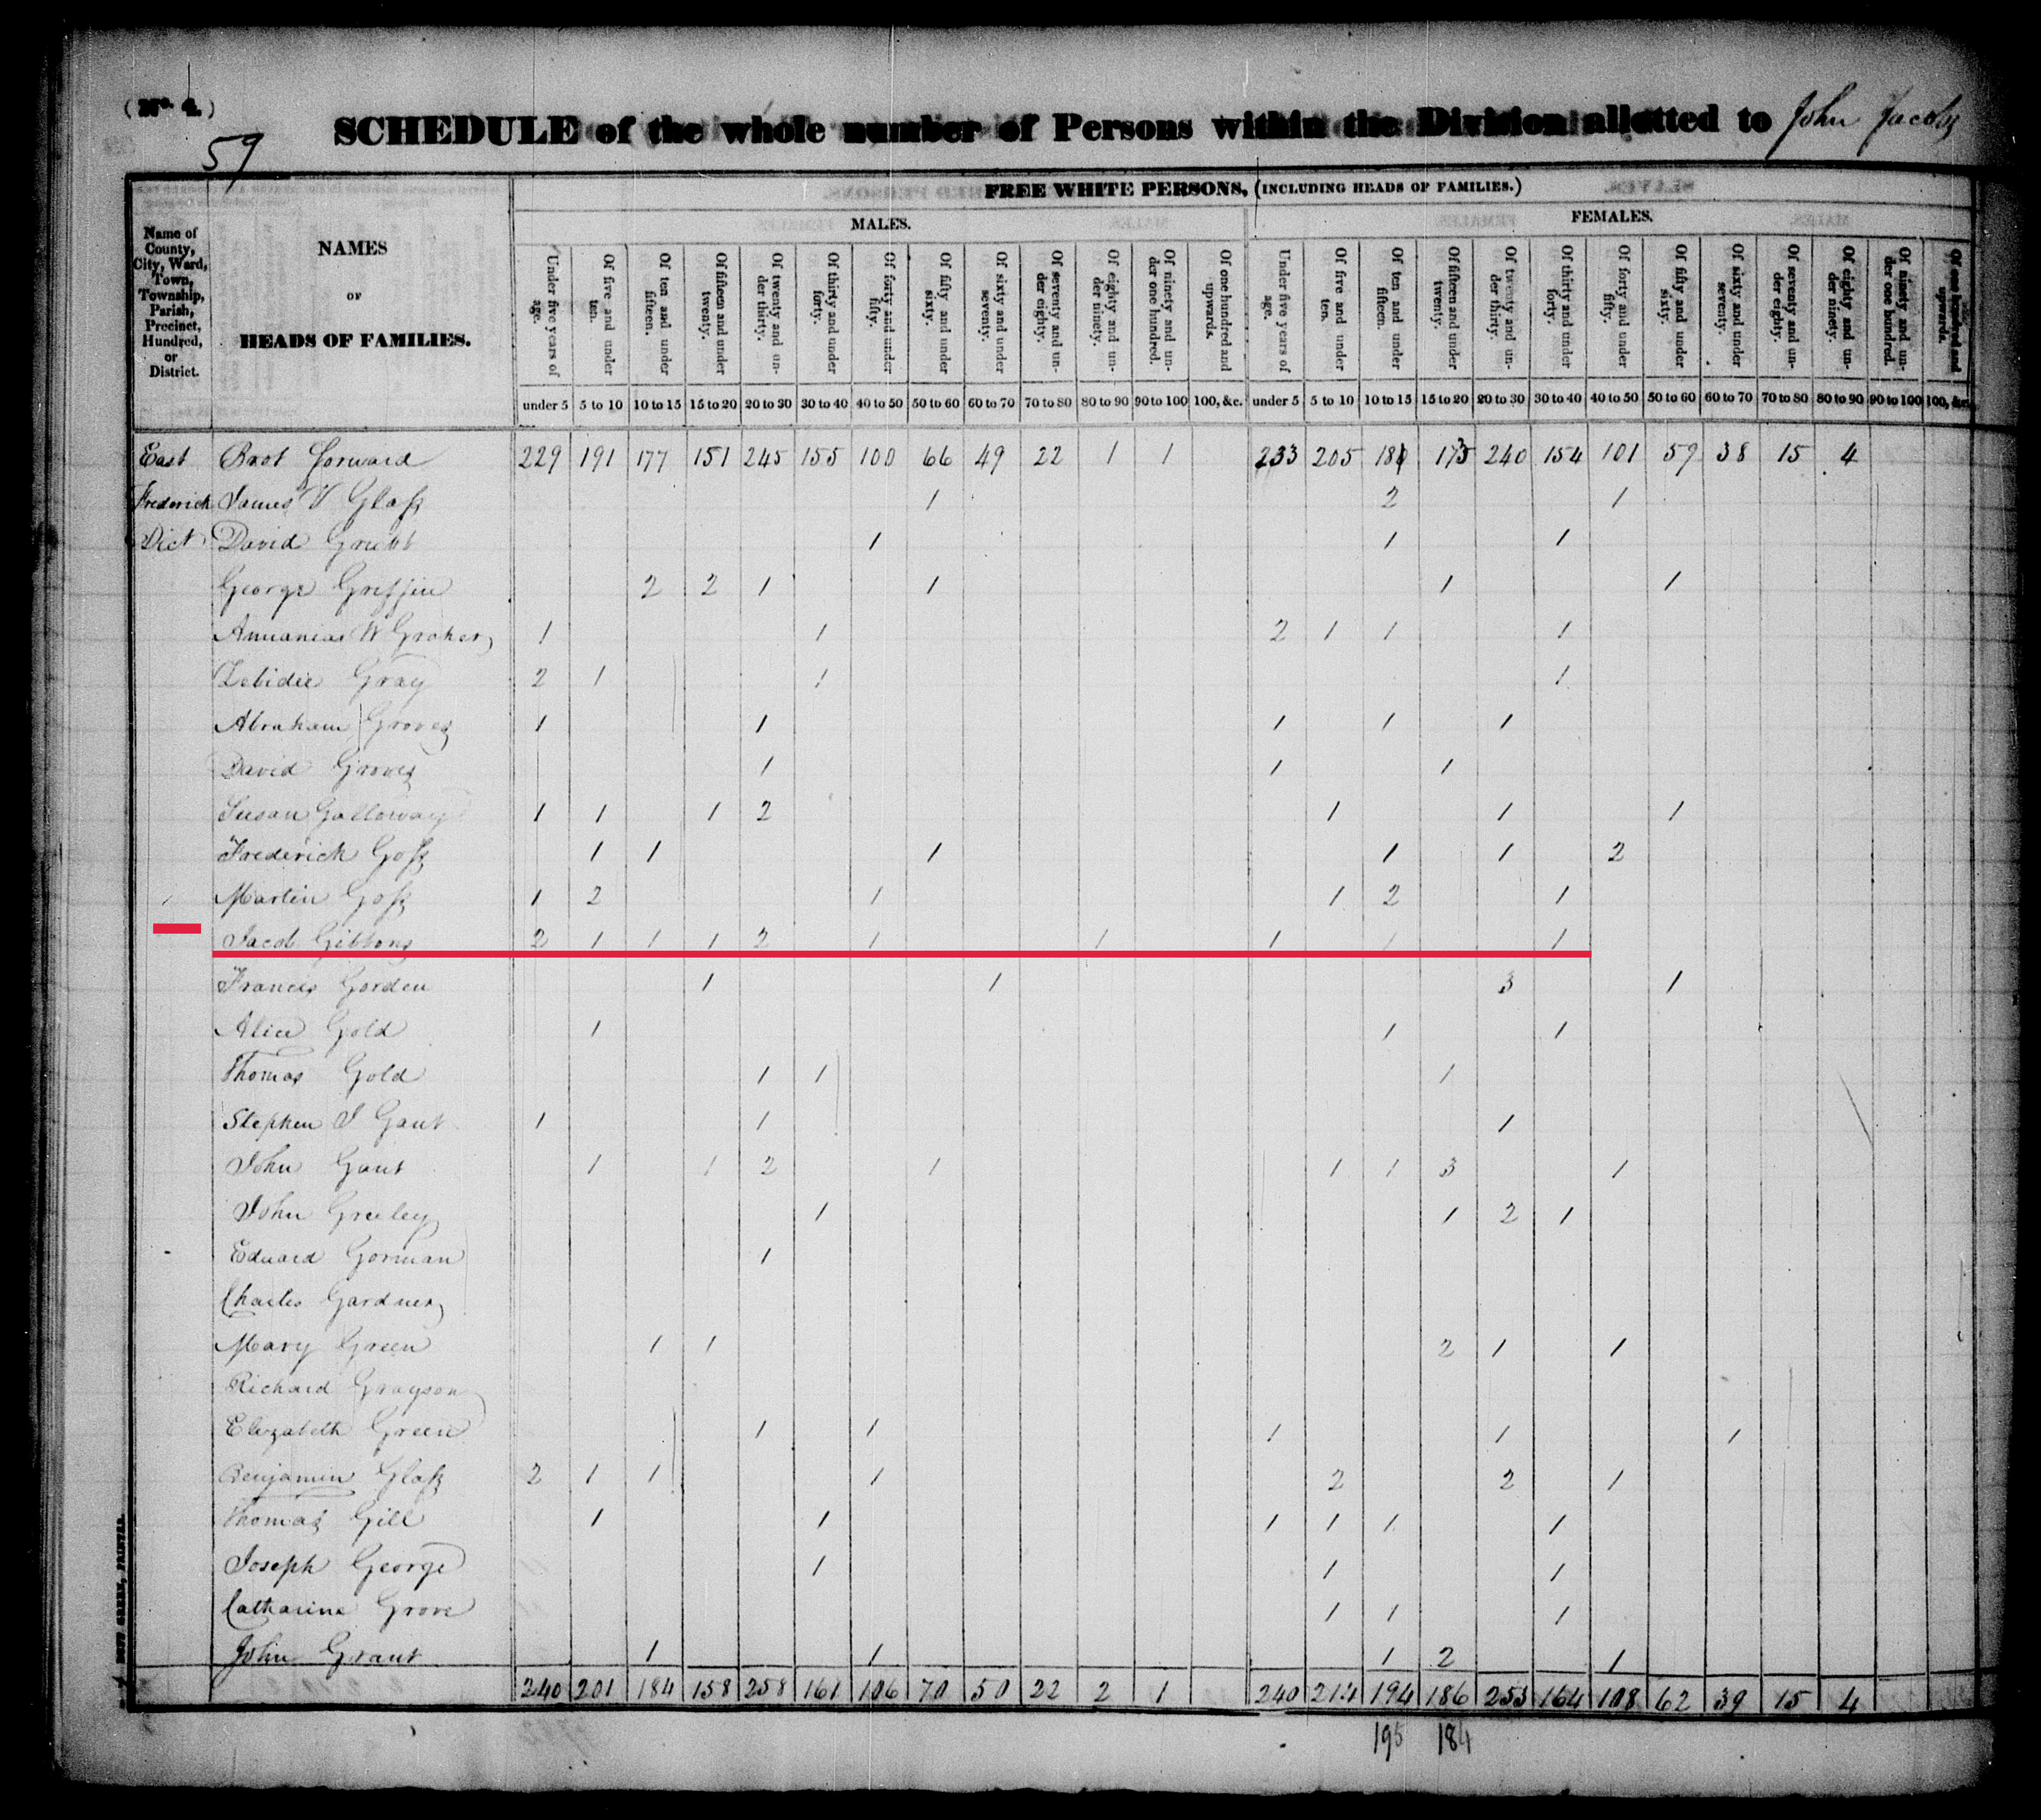 (No. 4.)
59
SCHEDULE of the whole number of Persons within the Division allotted to John Jacobs
Name of County, City, Ward, Town, Township, Parish, Precinct, Hundred, or District.
NAMES OF HEADS OF FAMILIES.
FREE WHITE PERSONS, (INCLUDING HEADS OF FAMILIES.)
MALES. FEMALES.
Under five years of age. Of five and under ten. Of ten and under fifteen. Of fifteen and under twenty. Of twenty and under thirty. Of thirty and under forty. Of forty and under fifty. Of fifty and under sixty. Of sixty and under seventy. Of seventy and under eighty. Of eighty and under ninety. Of ninety and under one hundred. Of one hundred and upwards. Under five years of age. Of five and under ten. Of ten and under fifteen. Of fifteen and under twenty. Of twenty and under thirty. Of thirty and under forty. Of forty and under fifty. Of fifty and under sixty. Of sixty and under seventy. Of seventy and under eighty. Of eighty and under ninety. Of ninety and under one hundred. Of one hundred and upwards.
under 5 5 to 10 10 to 15 15 to 20 20 to 30 30 to 40 40 to 50 50 to 60 60 to 70 70 to 80 80 to 90 90 to 100 100, &c. under 5 5 to 10 10 to 15 15 to 20 20 to 30 30 to 40 40 to 50 50 to 60 60 to 70 70 to 80 80 to 90 90 to 100 100, &c.
East Brot forward 229 191 177 151 245 155 100 66 49 22 1 1 233 205 181 173 240 154 101 59 38 15 4
Frederick James V Glass 1 2 1
Dict David Grubb 1 1 1
George Griffin 2 2 1 1 1 1
Annanias W Groker 1 1 2 1 1 1
Zebidee Gray 2 1 1 1
Abraham Groves 1 1 1 1 1
David Groves 1 1 1
Susan Galloway 1 1 1 2 1 1 1
Frederick Goss 1 1 1 1 1 2
Martin Goss 1 2 1 1 2 1
Jacob Gibbons 2 1 1 1 2 1 1 1 1 1
Francis Gorden 1 1 3 1
Alice Gold 1 1 1
Thomas Gold 1 1 1
Stephen J Gant 1 1 1
John Gant 1 1 2 1 1 1 3 1
John Greeley 1 1 2 1
Eduard Gorman 1
Charles Gardner
Mary Green 1 1 2 1 1
Richard Grayson
Elizabeth Green 1 1 1 1 1
Benjamin Glass 2 1 1 1 2 2 1
Thomas Gill 1 1 1 1 1 1
Joseph George 1 1 1
Catharine Grove 1 1 1
John Grant 1 1 1 2 1
240 201 184 158 258 161 106 70 50 22 2 1 240 214 194 186 253 164 108 62 39 15 4
195 184